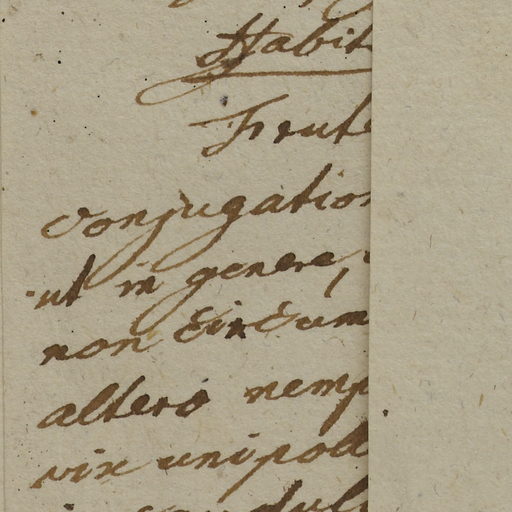 Habit
Frute
conjugation
ut in genere,
non circum
altero nemp
vix unipoll